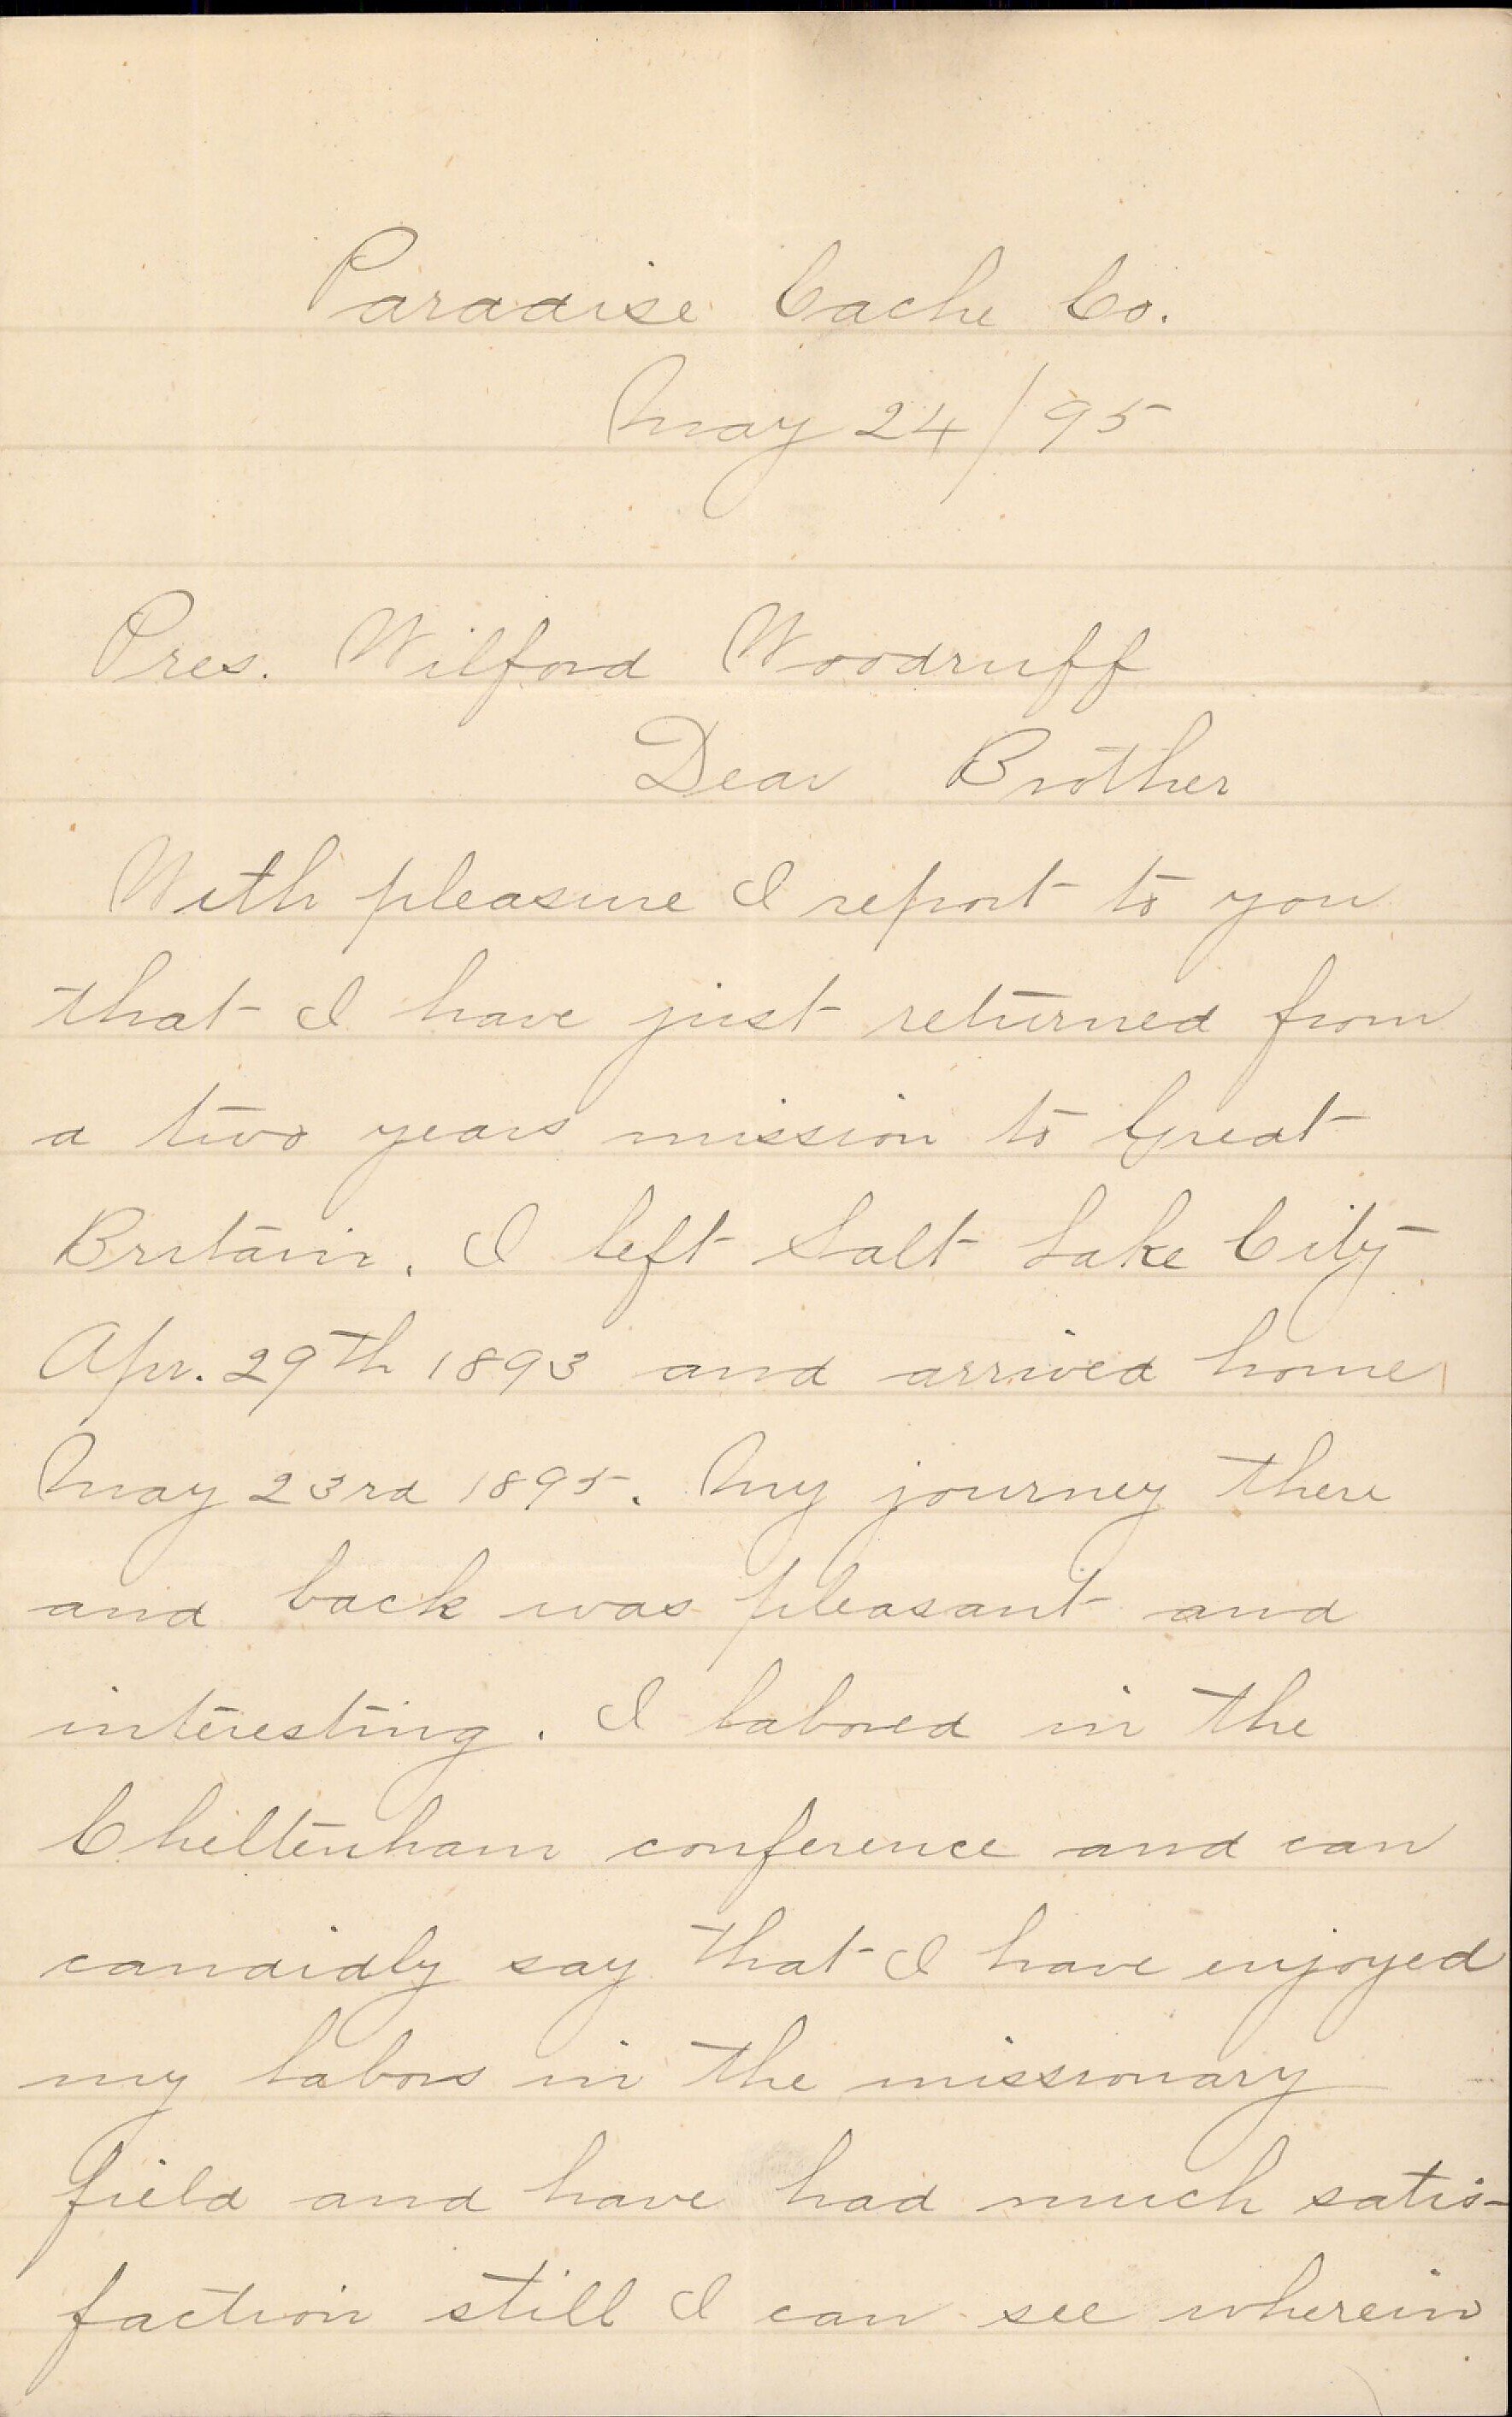 Paradise Cache Co.
May 24/95
Pres. Wilford Woodruff
Dear Brother
With pleasure I report to you
that I have just returned from
a two years mission to Great
Britain. I left Salt Lake City
Apr. 29th 1893 and arrived home
May 23rd 1895. My journey there
and back was pleasant and
interesting. I labored in the
Cheltenham conference and can
candidly say that I have enjoyed
my labors in the missionary
field and have had much satis-
faction still I can see wherein